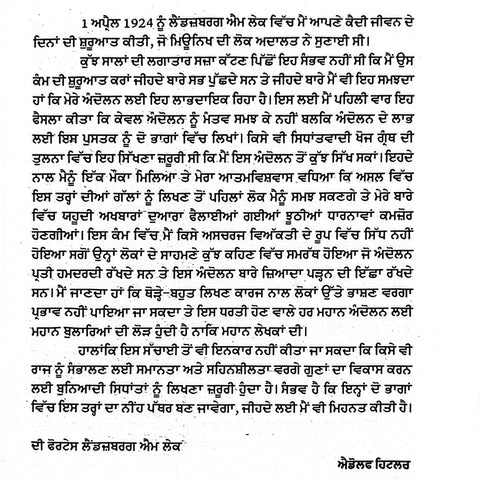 1 ਅਪ੍ਰੈਲ 1924 ਨੂੰ ਲੈਂਡਜ਼ਬਰਗ ਐਮ ਲੇਕ ਵਿੱਚ ਮੈਂ ਆਪਣੇ ਕੈਦੀ ਜੀਵਨ ਦੇ
ਦਿਨਾਂ ਦੀ ਸ਼ੁਰੂਆਤ ਕੀਤੀ, ਜੋ ਮਿਊਨਿਖ ਦੀ ਲੋਕ ਅਦਾਲਤ ਨੇ ਸੁਣਾਈ ਸੀ।
ਕੁੱਝ ਸਾਲਾਂ ਦੀ ਲਗਾਤਾਰ ਸਜ਼ਾ ਕੱਟਣ ਪਿੱਛੋਂ ਇਹ ਸੰਭਵ ਨਹੀਂ ਸੀ ਕਿ ਮੈਂ ਉਸ
ਕੰਮ ਦੀ ਸ਼ੁਰੂਆਤ ਕਰਾਂ ਜੀਹਦੇ ਬਾਰੇ ਸਭ ਪੁੱਛਦੇ ਸਨ ਤੇ ਜੀਹਦੇ ਬਾਰੇ ਮੈਂ ਵੀ ਇਹ ਸਮਝਦਾ
ਹਾਂ ਕਿ ਮੇਰੇ ਅੰਦੋਲਨ ਲਈ ਇਹ ਲਾਭਦਾਇਕ ਰਿਹਾ ਹੈ। ਇਸ ਲਈ ਮੈਂ ਪਹਿਲੀ ਵਾਰ ਇਹ
ਫੈਸਲਾ ਕੀਤਾ ਕਿ ਕੇਵਲ ਅੰਦੋਲਨ ਨੂੰ ਮੰਤਵ ਸਮਝ ਕੇ ਨਹੀਂ ਬਲਕਿ ਅੰਦੋਲਨ ਦੇ ਲਾਭ
ਲਈ ਇਸ ਪੁਸਤਕ ਨੂੰ ਦੋ ਭਾਗਾਂ ਵਿੱਚ ਲਿਖਾਂ। ਕਿਸੇ ਵੀ ਸਿਧਾਂਤਵਾਦੀ ਖੋਜ ਗ੍ਰੰਥ ਦੀ
ਤੁਲਨਾ ਵਿੱਚ ਇਹ ਸਿੱਖਣਾ ਜ਼ਰੂਰੀ ਸੀ ਕਿ ਮੈਂ ਇਸ ਅੰਦੋਲਨ ਤੋਂ ਕੁੱਝ ਸਿੱਖ ਸਕਾਂ। ਇਹਦੇ
ਨਾਲ ਮੈਨੂੰ ਇੱਕ ਮੌਕਾ ਮਿਲਿਆ ਤੇ ਮੇਰਾ ਆਤਮਵਿਸ਼ਵਾਸ ਵਧਿਆ ਕਿ ਅਸਲ ਵਿੱਚ
ਇਸ ਤਰ੍ਹਾਂ ਦੀਆਂ ਗੱਲਾਂ ਨੂੰ ਲਿਖਣ ਤੋਂ ਪਹਿਲਾਂ ਲੋਕ ਮੈਨੂੰ ਸਮਝ ਸਕਣਗੇ ਤੇ ਮੇਰੇ ਬਾਰੇ
ਵਿੱਚ ਯਹੂਦੀ ਅਖਬਾਰਾਂ ਦੁਆਰਾ ਫੈਲਾਈਆਂ ਗਈਆਂ ਝੂਠੀਆਂ ਧਾਰਨਾਵਾਂ ਕਮਜ਼ੋਰ
ਹੋਣਗੀਆਂ। ਇਸ ਕੰਮ ਵਿੱਚ ਮੈਂ ਕਿਸੇ ਅਸਚਰਜ ਵਿਅੱਕਤੀ ਦੇ ਰੂਪ ਵਿੱਚ ਸਿੱਧ ਨਹੀਂ
ਹੋਇਆ ਸਗੋਂ ਉਨ੍ਹਾਂ ਲੋਕਾਂ ਦੇ ਸਾਹਮਣੇ ਕੁੱਝ ਕਹਿਣ ਵਿੱਚ ਸਮਰੱਥ ਹੋਇਆ ਜੋ ਅੰਦੋਲਨ
ਪ੍ਰਤੀ ਹਮਦਰਦੀ ਰੱਖਦੇ ਸਨ ਤੇ ਇਸ ਅੰਦੋਲਨ ਬਾਰੇ ਜ਼ਿਆਦਾ ਪੜ੍ਹਨ ਦੀ ਇੱਛਾ ਰੱਖਦੇ
ਸਨ। ਮੈਂ ਜਾਣਦਾ ਹਾਂ ਕਿ ਥੋੜ੍ਹੇ-ਬਹੁਤ ਲਿਖਣ ਕਾਰਜ ਨਾਲ ਲੋਕਾਂ ਉੱਤੇ ਭਾਸ਼ਣ ਵਰਗਾ
ਪ੍ਰਭਾਵ ਨਹੀਂ ਪਾਇਆ ਜਾ ਸਕਦਾ ਤੇ ਇਸ ਧਰਤੀ ਹੋਣ ਵਾਲੇ ਹਰ ਮਹਾਨ ਅੰਦੋਲਨ ਲਈ
ਮਹਾਨ ਬੁਲਾਰਿਆਂ ਦੀ ਲੋੜ ਹੁੰਦੀ ਹੈ ਨਾਕਿ ਮਹਾਨ ਲੇਖਕਾਂ ਦੀ।
ਹਾਲਾਂਕਿ ਇਸ ਸੱਚਾਈ ਤੋਂ ਵੀ ਇਨਕਾਰ ਨਹੀਂ ਕੀਤਾ ਜਾ ਸਕਦਾ ਕਿ ਕਿਸੇ ਵੀ
ਰਾਜ ਨੂੰ ਸੰਭਾਲਣ ਲਈ ਸਮਾਨਤਾ ਅਤੇ ਸਹਿਨਸ਼ੀਲਤਾ ਵਰਗੇ ਗੁਣਾਂ ਦਾ ਵਿਕਾਸ ਕਰਨ
ਲਈ ਬੁਨਿਆਦੀ ਸਿਧਾਂਤਾਂ ਨੂੰ ਲਿਖਣਾ ਜ਼ਰੂਰੀ ਹੁੰਦਾ ਹੈ। ਸੰਭਵ ਹੈ ਕਿ ਇਨ੍ਹਾਂ ਦੋ ਭਾਗਾਂ
ਵਿੱਚ ਇਸ ਤਰ੍ਹਾਂ ਦਾ ਨੀਂਹ ਪੱਥਰ ਬਣ ਜਾਵੇਗਾ, ਜੀਹਦੇ ਲਈ ਮੈਂ ਵੀ ਮਿਹਨਤ ਕੀਤੀ ਹੈ।
ਦੀ ਫੋਰਟੇਸ ਲੈਂਡਜ਼ਬਰਗ ਐਮ ਲੇਕ
ਐਡੋਲਫ ਹਿਟਲਰ